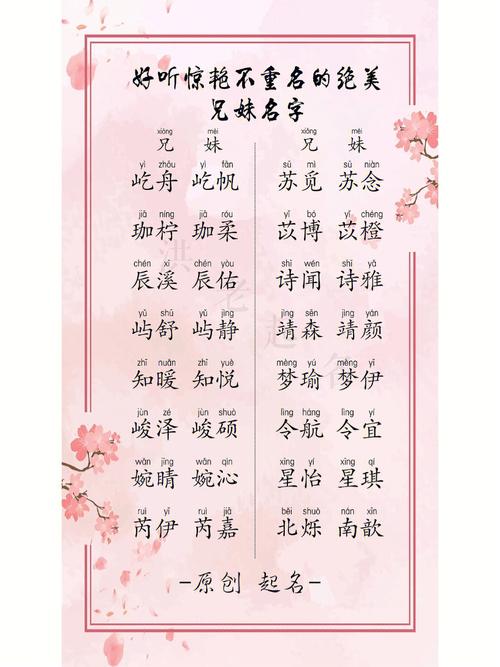 好听惊艳不重名的绝美
兄妹名字
xiōng mèi xiōng mèi
兄 妹 兄 妹
yì zhōu yì fān sū mì sū niàn
屹舟 屹帆 苏觅 苏念
jiā níng jiā róu yǐ bó yǐ chéng
珈柠 珈柔 苡博 苡橙
chén xī chén yòu shī wén shī yǎ
辰溪 辰佑 诗闻 诗雅
yǔ shū yǔ jìng jìng sēn jìng yán
屿舒 屿静 靖森 靖颜
zhī nuǎn zhī yuè mèng yú mèng yī
知暖 知悦 梦瑜 梦伊
jùn zé jùn shuò lìng háng lìng yí
峻泽 峻硕 令航 令宜
wǎn jìng wǎn qìn xīng yí xīng qí
婉晴 婉沁 星怡 星琪
ruì yī ruì jiā běi shuò nán xīn
芮伊 芮嘉 北烁 南歆
洪老起名
-原创 起名-